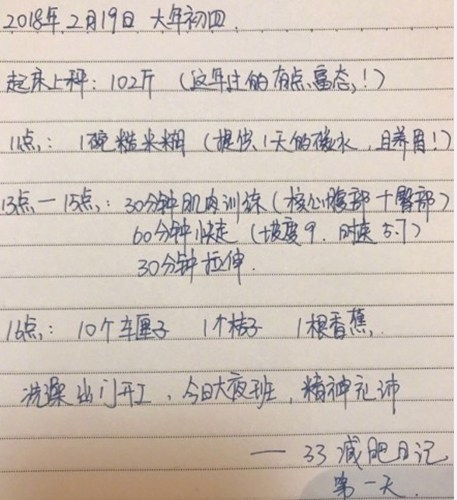 2018年2月19日 大年初四.
起床上秤：102斤（这年过的有点富态！）
11点：1碗糙米糊（提供1天的碳水，且养胃！）
13点—15点：30分钟肌肉训练（核心腹部+臀部）
60分钟快走（坡度9. 时速5.7）
30分钟拉伸.
16点：10个车厘子 1个桔子 1根香蕉,
洗澡出门开工，今日大夜班，精神充沛
—33减肥日记
第一天.